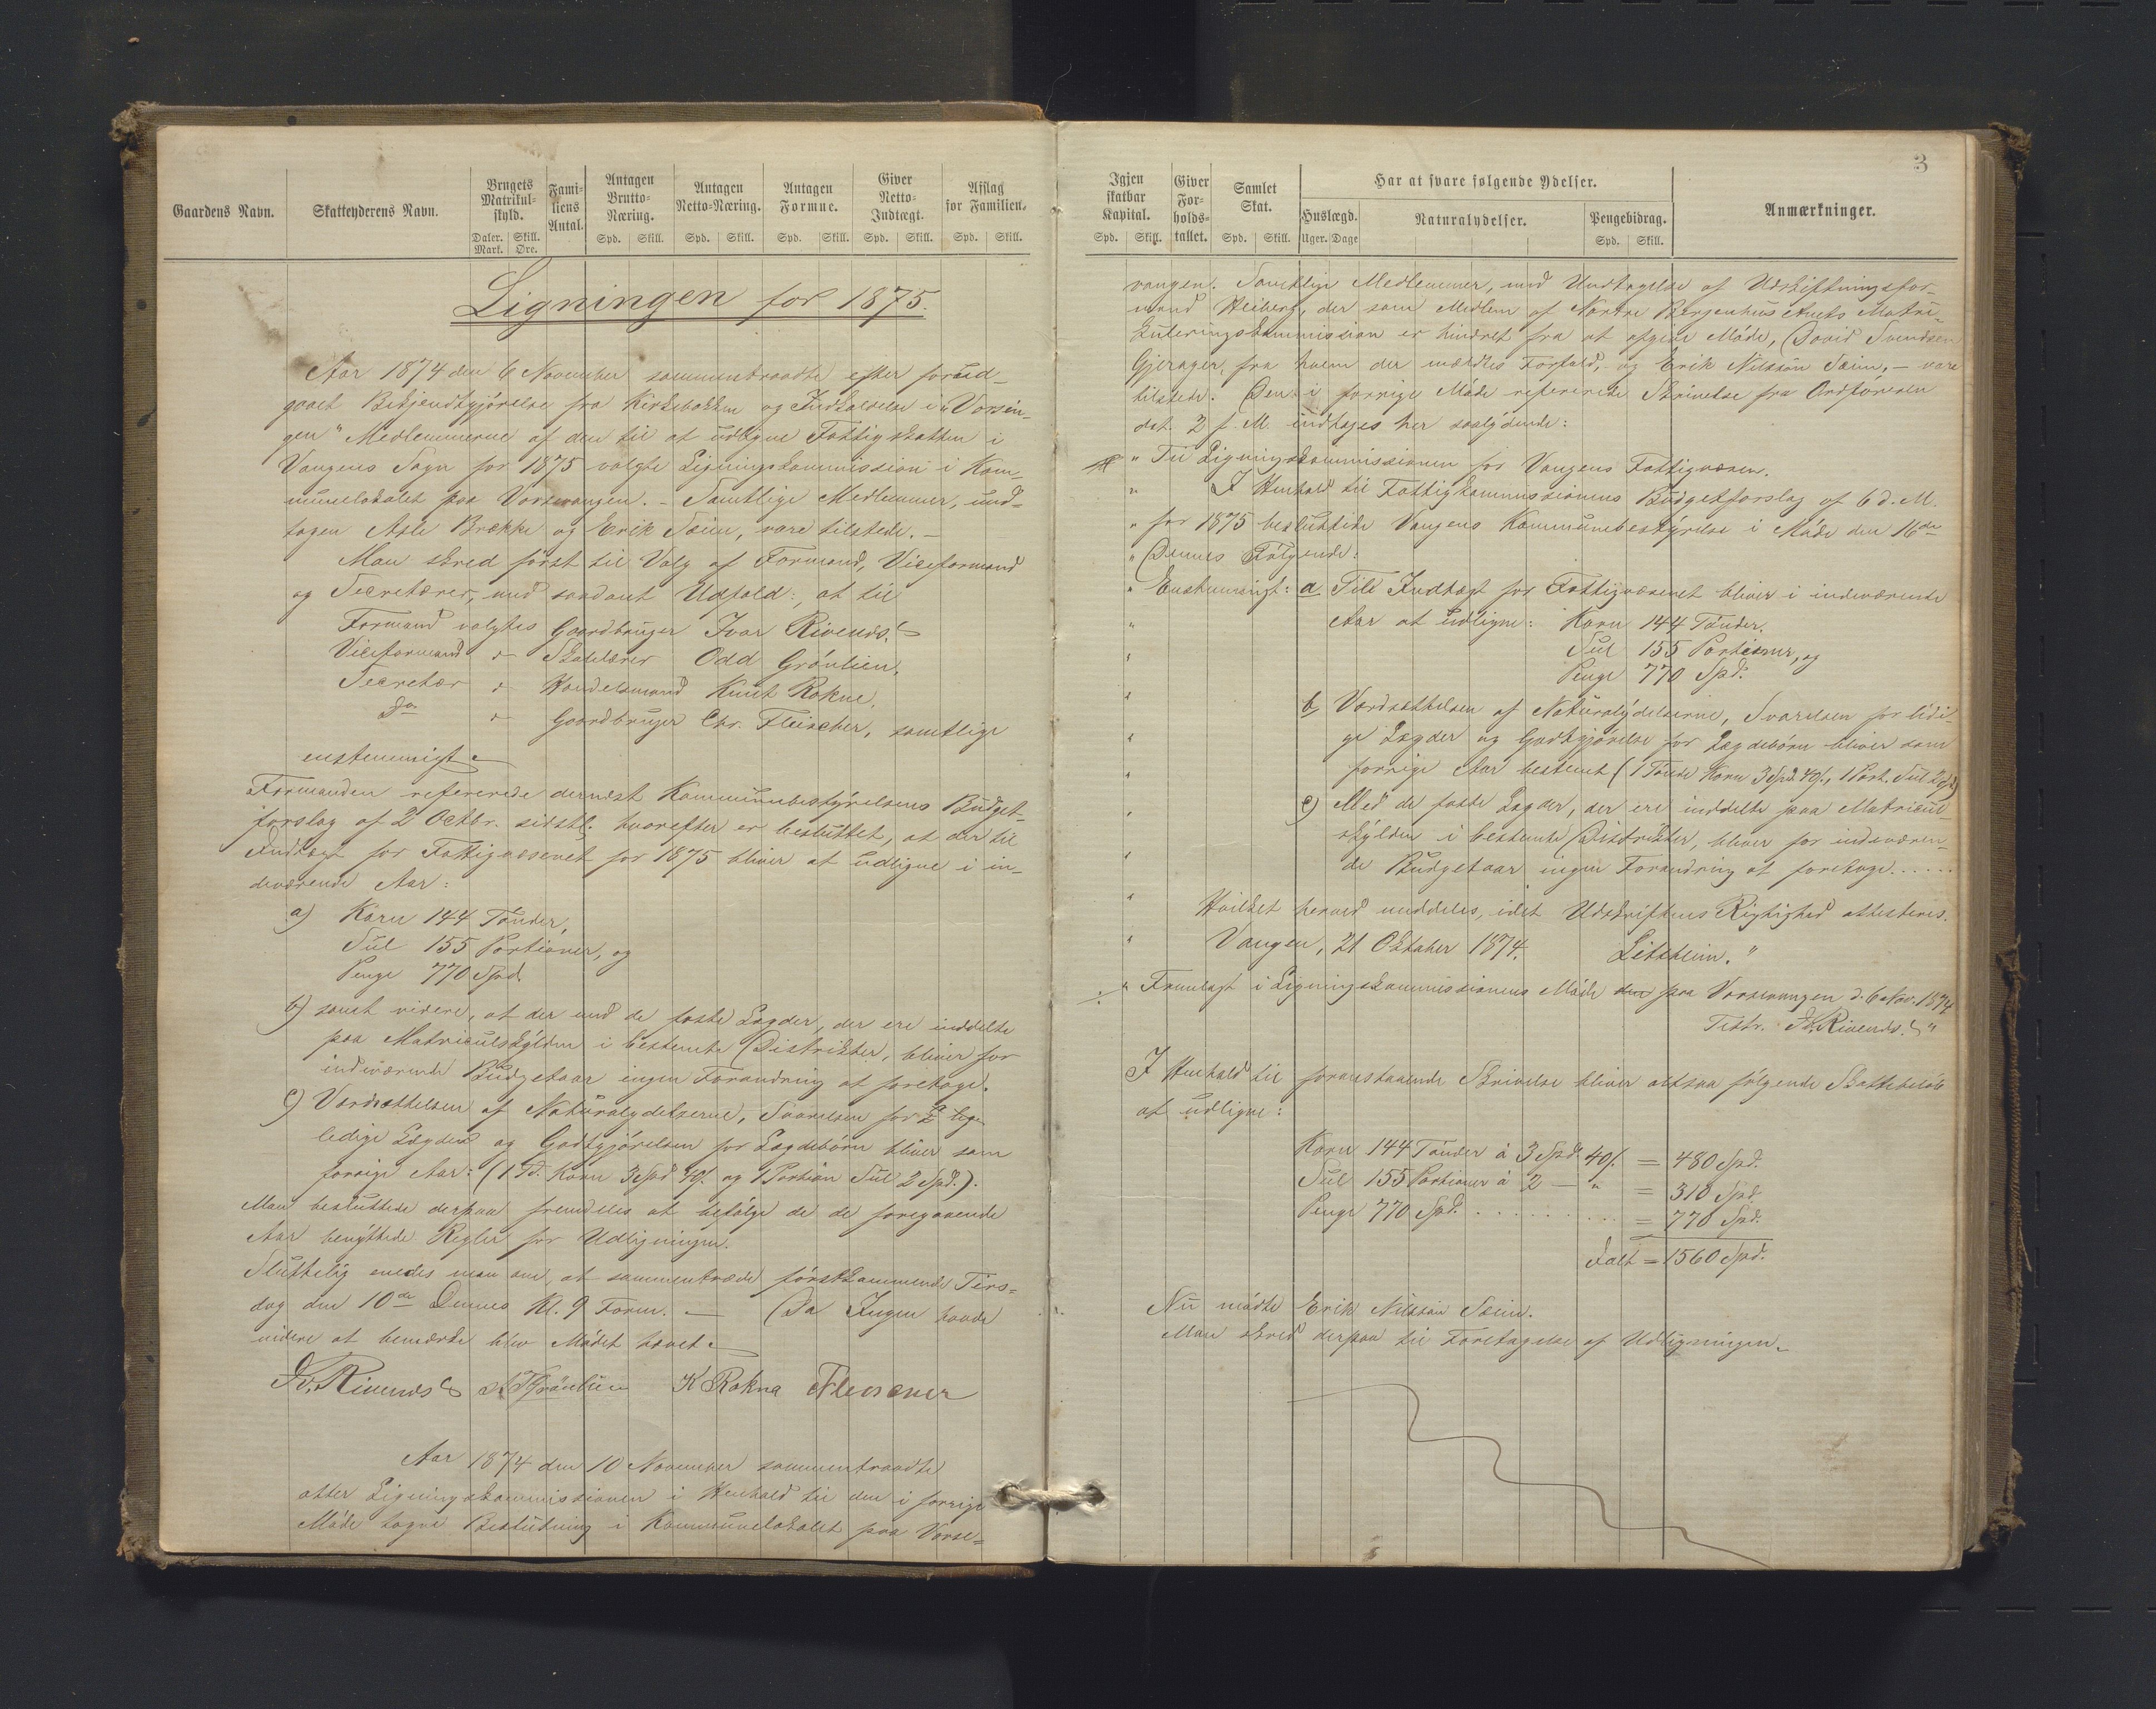 Gaardens Navn. Skatteyderens Navn. Brugets Matrikul-skyld. Fami-liens Antal. Antagen Brutto-Næring. Antagen Netto-Næring. Antagen Formue. Giver Netto-Indtægt. Afslag for Familien.
Daler. Skill. Mark. Øre. Spd. Skill. Spd. Skill. Spd. Skill. Spd. Skill. Spd. Skill.
Ligningen for 1875.
Aar 1874 den 6 November sammentraadte efter forud-
gaaet Bekjendtgjørelse fra Kirkebakken og Indkaldelse i "Vossin-
gen" Medlemmerne af den til at udligne Fattigskatten i
Vangens Sogn for 1875 valgte Ligningskommission i Kom-
munelokalet paa Vossevangen. – Samtlige Medlemmer, und-
tagen Asle Brække og Erik Sæim, vare tilstede. –
Man skred først til Valg af Formand, Viceformand
og Secretærer, med saadant Udfald:, at til
Formand valgtes Gaardbruger Ivar Rivends.
Viceformand Skolelærer Odd Grønlien,
Secretær Handelsmand Knut Rokne,
Do Gaardbruger Chr. Fleischer, samtlige
enstemmigt.
Formanden refererede dernæst Kommunebestyrelsens Budget-
forslag af 2 Octbr. sidstl. hvorefter er besluttet, at der til
Indtægt for Fattigvæsenet for 1875 bliver at udligne i in-
deværende Aar:
a) Korn 144 Tønder,
Sul 155 Portioner, og
Penge 770 Spd.
b) samt videre, at der med de faste Lægder, der ere inddelte
paa Matriculskylden i bestemte Distrikter, bliver for
indeværende Budgetaar ingen Forandring at foretage.
c) Værdsættelsen af Naturalydelserne, Svarelsen for
ledige Lægder og Godtgjørelsen for Lægdebørn bliver som
forrige Aar: (1 Td. Korn 3 Spd 40/. og 1 Portion Sul 2 Spd.).
Man besluttede derpaa fremdeles at befølge de de foregaaende
Aar benyttede Regler for Udligningen.
Sluttelig enedes man om, at sammentræde førstkommende Tirs-
dag den 10de Dennes Kl. 9 Form. – Da Ingen havde
videre at bemærke blev Mødet hævet.
Iv. Rivends O Grønlien K Rokne Fleischer
Aar 1874 den 10 November sammentraadte
atter Ligningskommissionen i Henhold til den i forrige
Møde tagne Beslutning i Kommunelokalet paa Vosse-
3
Igjen skatbar Kapital. Giver For-holds-tallet. Samlet Skat. Har at svare følgende Ydelser. Anmærkninger.
Huslægd. Naturalydelser. Pengebidrag.
Spd. Skill. Spd. Skill. Uger. Dage Spd. Skill.
vangen. Samtlige Medlemmer, med Undtagelse af Udskiftningsfor-
mand Heiberg, der som Medlem af Nordre Bergenhus Amts Matri-
kuleringskommission er hindret fra at afgive Møde, David Svendsen
Gjerager, fra hvem der meldtes Forfald, og Erik Nilssøn Sæim, – vare
tilstede. Den i forrige Møde refererede Skrivelse fra Ordføreren
dat. 2 f. M. indtages her saalydende:
" Til Ligningskommissionen for Vangens Fattigvæsen.
" I Henhold til Fattigkommissionens Budgetforslag af 6 d. M.
" for 1875 besluttede Vangens Kommunebestyrelse i Møde den 16de
" Dennes Følgende:
" Enstemmigt: a. Til Indtægt for Fattigvæsenet bliver i indeværende
" Aar at udligne: Korn 144 Tønder.
" Sul 155 Portioner, og
Penge 770 Spd.
" b) Værdsættelsen af Naturalydelserne, Svarelsen for ledi-
" ge Lægder og Godtgjørelse for Lægdebørn bliver som
" forrige Aar bestemt (1 Tønde Korn 3 Spd. 40/., 1 Port. Sul 2 Spd.)
" c) Med de faste Lægder, der ere inddelte paa Matricul-
skylden i bestemte Distrikter, bliver for indeværen-
" de Budgetaar ingen Forandring at foretage......
" Hvilket herved meddeles, idet Udskriftens Rigtighed attesteres.
" Vangen, 21 Oktober 1874. Litsheim."
" Fremlagt i Ligningskommissionens Møde paa Vossevangen d. 6 Nov. 1874
Iv. Rivends. "
I Henhold til foranstaaende Skrivelse bliver altsaa følgende Skattebeløb
at udligne:
Korn 144 Tønder à 3 Spd. 40/. = 480 Spd.
Sul 155 Portioner à 2 — " = 310 Spd.
Penge 770 Spd. . . . . . . . . . = 770 Spd.
Ialt = 1560 Spd.
Nu mødte Erik Nilssøn Sæim.
Man skred derpaa til Foretagelse af Udligningen.